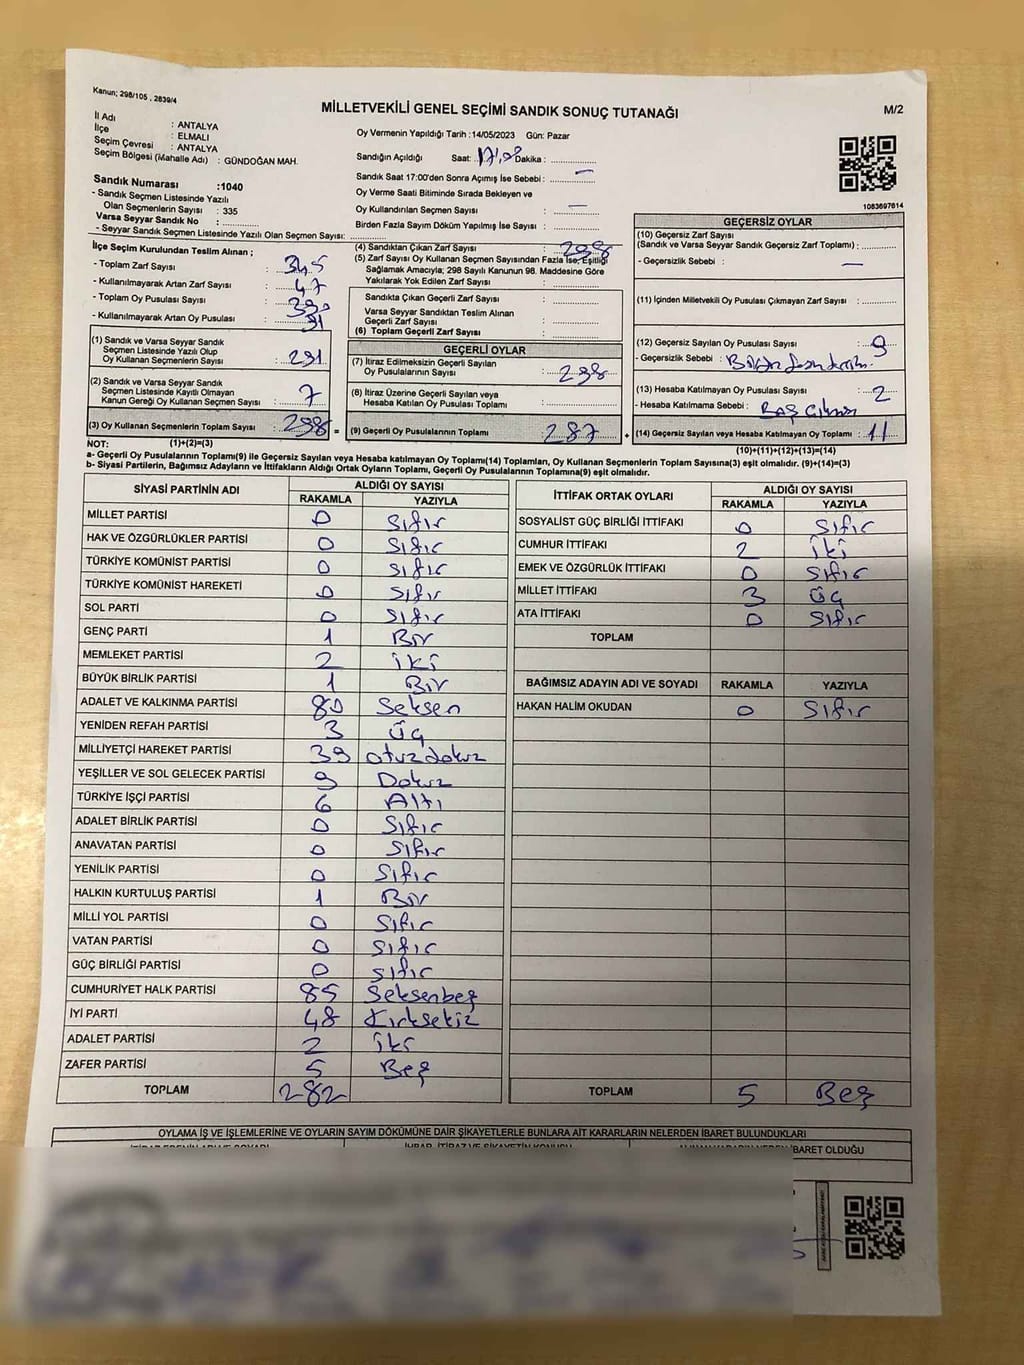 Kanun; 298/105 , 2839/4
MİLLETVEKİLİ GENEL SEÇİMİ SANDIK SONUÇ TUTANAĞI
M/2
İl Adı : ANTALYA
İlçe : ELMALI
Seçim Çevresi : ANTALYA
Seçim Bölgesi (Mahalle Adı) : GÜNDOĞAN MAH.
Sandık Numarası :1040
- Sandık Seçmen Listesinde Yazılı
Olan Seçmenlerin Sayısı : 335
Varsa Seyyar Sandık No :
- Seyyar Sandık Seçmen Listesinde Yazılı Olan Seçmen Sayısı:
Oy Vermenin Yapıldığı Tarih :14/05/2023 Gün: Pazar
Sandığın Açıldığı Saat: 17:08 Dakika :
Sandık Saat 17:00'den Sonra Açımış İse Sebebi : —
Oy Verme Saati Bitiminde Sırada Bekleyen ve
Oy Kullandırılan Seçmen Sayısı : —
Birden Fazla Sayım Döküm Yapılmış İse Sayısı :
1083697614
İlçe Seçim Kurulundan Teslim Alınan ;
- Toplam Zarf Sayısı : 345
- Kullanılmayarak Artan Zarf Sayısı : 47
- Toplam Oy Pusulası Sayısı :
- Kullanılmayarak Artan Oy Pusulası :
(1) Sandık ve Varsa Seyyar Sandık
Seçmen Listesinde Yazılı Olup
Oy Kullanan Seçmenlerin Sayısı : 291
(2) Sandık ve Varsa Seyyar Sandık
Seçmen Listesinde Kayıtlı Olmayan
Kanun Gereği Oy Kullanan Seçmen Sayısı : 7
(3) Oy Kullanan Seçmenlerin Toplam Sayısı : 298 =
(4) Sandıktan Çıkan Zarf Sayısı : 298
(5) Zarf Sayısı Oy Kullanan Seçmen Sayısından Fazla İse, Eşitliği
Sağlamak Amacıyla; 298 Sayılı Kanunun 98. Maddesine Göre
Yakılarak Yok Edilen Zarf Sayısı :
Sandıkta Çıkan Geçerli Zarf Sayısı :
Varsa Seyyar Sandıktan Teslim Alınan
Geçerli Zarf Sayısı :
(6) Toplam Geçerli Zarf Sayısı :
GEÇERLİ OYLAR
(7) İtiraz Edilmeksizin Geçerli Sayılan
Oy Pusulalarının Sayısı : 298
(8) İtiraz Üzerine Geçerli Sayılan veya
Hesaba Katılan Oy Pusulası Toplamı :
(9) Geçerli Oy Pusulalarının Toplamı : 287 +
GEÇERSİZ OYLAR
(10) Geçersiz Zarf Sayısı
(Sandık ve Varsa Seyyar Sandık Geçersiz Zarf Toplamı) :
- Geçersizlik Sebebi : —
(11) İçinden Milletvekili Oy Pusulası Çıkmayan Zarf Sayısı :
(12) Geçersiz Sayılan Oy Pusulası Sayısı : 9
- Geçersizlik Sebebi :
(13) Hesaba Katılmayan Oy Pusulası Sayısı : 2
- Hesaba Katılmama Sebebi : Boş
(14) Geçersiz Sayılan veya Hesaba Katılmayan Oy Toplamı : 11
NOT: (1)+(2)=(3)
(10)+(11)+(12)+(13)=(14)
a- Geçerli Oy Pusulalarının Toplamı(9) ile Geçersiz Sayılan veya Hesaba katılmayan Oy Toplamı(14) Toplamları, Oy Kullanan Seçmenlerin Toplam Sayısına(3) eşit olmalıdır. (9)+(14)=(3)
b- Siyasi Partilerin, Bağımsız Adayların ve İttifakların Aldığı Ortak Oyların Toplamı, Geçerli Oy Pusulalarının Toplamına(9) eşit olmalıdır.
SİYASİ PARTİNİN ADI ALDIĞI OY SAYISI
RAKAMLA YAZIYLA
MİLLET PARTİSİ 0 Sıfır
HAK VE ÖZGÜRLÜKLER PARTİSİ 0 Sıfır
TÜRKİYE KOMÜNİST PARTİSİ 0 Sıfır
TÜRKİYE KOMÜNİST HAREKETİ 0 Sıfır
SOL PARTİ 0 Sıfır
GENÇ PARTİ 1 Bir
MEMLEKET PARTİSİ 2 iki
BÜYÜK BİRLİK PARTİSİ 1 Bir
ADALET VE KALKINMA PARTİSİ 80 Seksen
YENİDEN REFAH PARTİSİ 3 üç
MİLLİYETÇİ HAREKET PARTİSİ 39 otuzdokuz
YEŞİLLER VE SOL GELECEK PARTİSİ 9 Dokuz
TÜRKİYE İŞÇİ PARTİSİ 6 Altı
ADALET BİRLİK PARTİSİ 0 Sıfır
ANAVATAN PARTİSİ 0 Sıfır
YENİLİK PARTİSİ 0 Sıfır
HALKIN KURTULUŞ PARTİSİ 1 Bir
MİLLİ YOL PARTİSİ 0 Sıfır
VATAN PARTİSİ 0 Sıfır
GÜÇ BİRLİĞİ PARTİSİ 0 Sıfır
CUMHURİYET HALK PARTİSİ 85 Seksenbeş
İYİ PARTİ 48 Kırksekiz
ADALET PARTİSİ 2 iki
ZAFER PARTİSİ 5 Beş
TOPLAM 282
İTTİFAK ORTAK OYLARI ALDIĞI OY SAYISI
RAKAMLA YAZIYLA
SOSYALİST GÜÇ BİRLİĞİ İTTİFAKI 0 Sıfır
CUMHUR İTTİFAKI 2 iki
EMEK VE ÖZGÜRLÜK İTTİFAKI 0 Sıfır
MİLLET İTTİFAKI 3 üç
ATA İTTİFAKI 0 Sıfır
TOPLAM
BAĞIMSIZ ADAYIN ADI VE SOYADI RAKAMLA YAZIYLA
HAKAN HALİM OKUDAN 0 Sıfır
TOPLAM 5 Beş
OYLAMA İŞ VE İŞLEMLERİNE VE OYLARIN SAYIM DÖKÜMÜNE DAİR ŞİKAYETLERLE BUNLARA AİT KARARLARIN NELERDEN İBARET BULUNDUKLARI
İBARET OLDUĞU